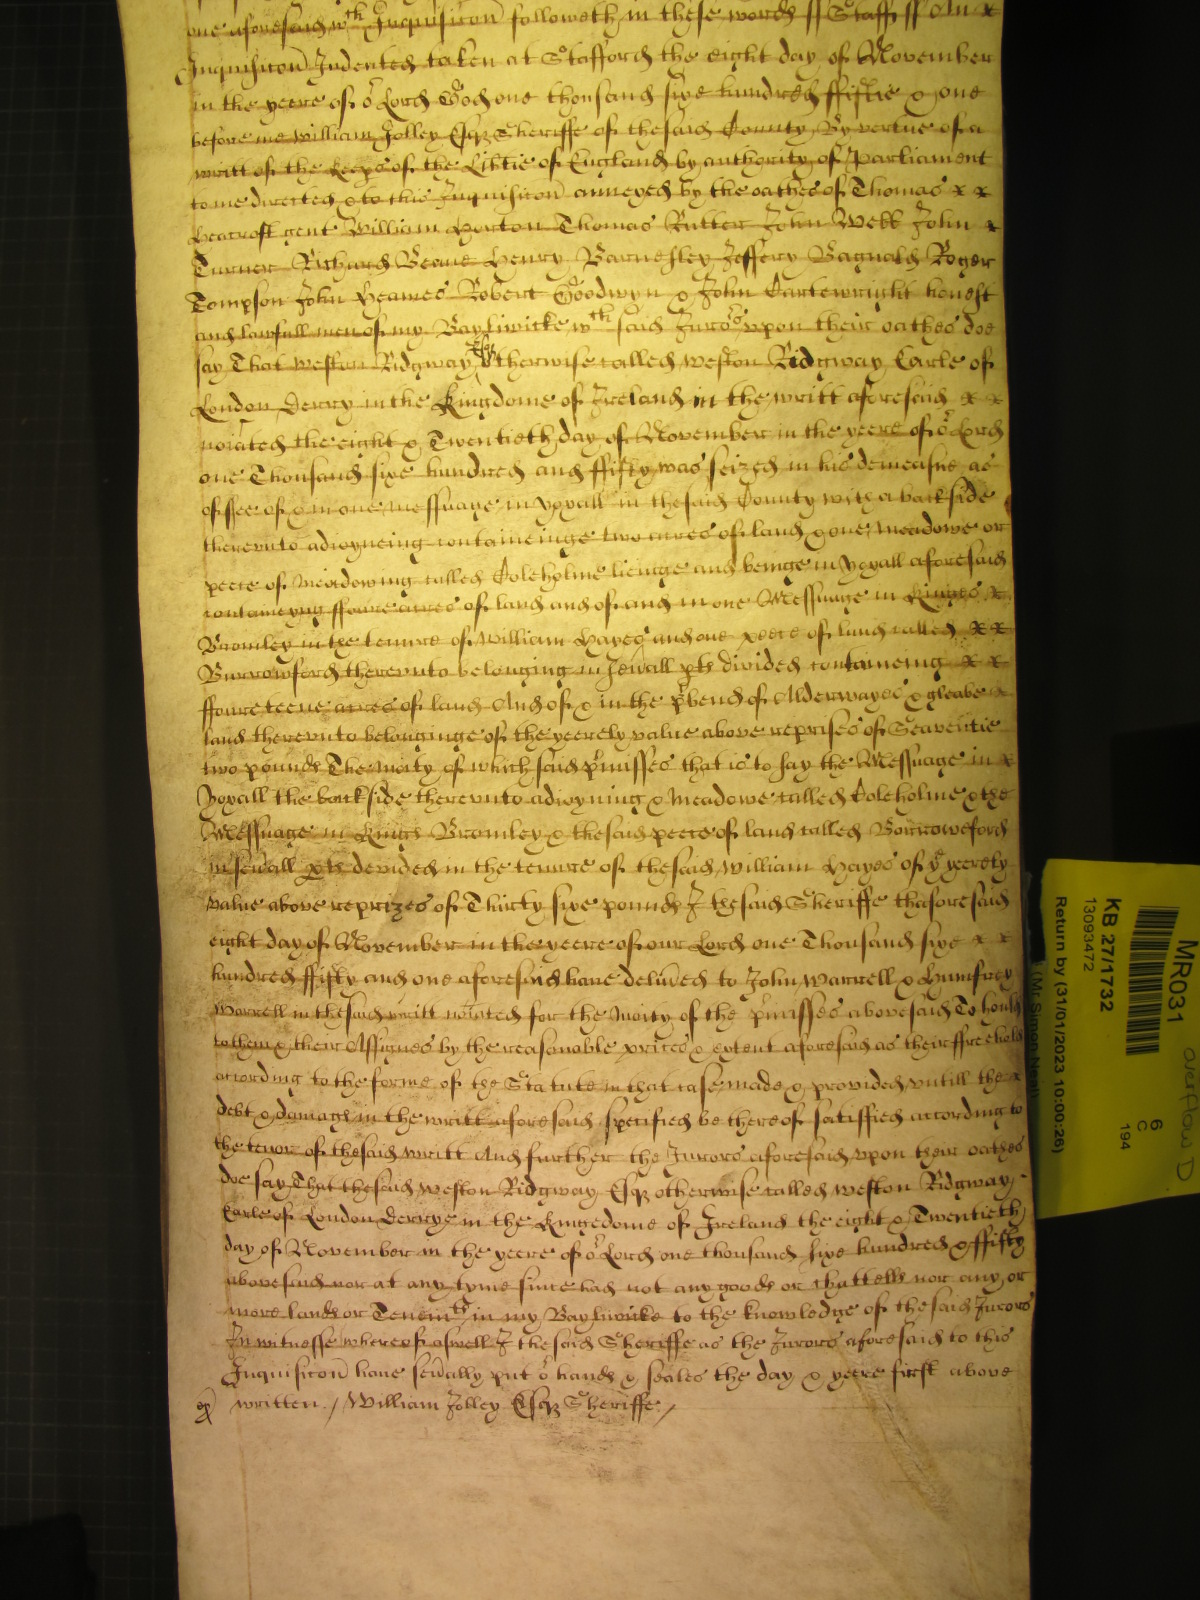 one aforesaid wth Inquisicon followeth in these words ss Staff ss An x
Inquisicon Indented taken at Stafford the eight day of November
in the yeere of or Lord God one thousand sixe hundred fiftie & one
before me William Jolley Esqr Sheriffe of the said County By vertue of a
writt of the Keeps of the Libtie of England by authority of Parliament
to me directed & to this Inquisicon annexed by the oathes of Thomas x x
Heacroft gent William Horton Thomas Rutter John Webb John x
Turner Richard Beane Henry Barnesley Jeffery Bagnald Roger
Tompson John Heames Robert Goodwyn & John Cartewright honest
and lawfull men of my Bayliwicke wth said Juros upon their oathes doe
say That Weston Ridgway Esqr otherwise called Weston Ridgway Earle of
London Derry in the Kingdome of Ireland in the writt aforesaid x x
noiated the eight & Twentieth day of November in the yeere of or Lord
one Thousand sixe hundred and fifty was seized in his demeasne as
of fee of & in one messuage in Yoxall in the said County with a backside
therevnto adioyneing contaieinge two acres of land & one meadowe or
peece of meadowing called Coleholme lieinge and beinge in Yoxall aforesaid
contameyng ffoure acres of land and of and in one Messuage in Kinges x
Bromley in the tenure of William Hayes and one peece of land called x x
Burrowford therevnto belonging in sewall pts divided contameing x x
ffoureteene acres of land And of & in the pbend of Alderwayes & gleabe x
land therevnto belonginge of the yeerely value above reprises of Seaventie
two pounds The moity of which said pmisses that is to say the Messuage in x
Yoxall the backside therevnto adioyning & meadowe called Coleholme & the
Messuage in Kings Bromley & the said peece of land called Borroweford
in sewall pts devided in the tenure of the said William Hayes of ye yeerely
value above reprizes of Thirty sixe pounds I the said Sheriffe thaforesaid
eight day of November in the yeere of our Lord one Thousand sixe x x
hundred ffifty and one aforesaid have delived to John Warrell & Humfrey
Warrell in the said writt noiated for the moity of the pmisses abovesaid To hould
to them & their Assignes by the reasonable prices & extent aforesaid as their ffreehold
according to the forme of the Statute in that case made & provided vntill the x
debt & damags in the writt aforesaid specified be thereof satisfied according to
the tenor of the said writt And further the Jurors aforesaid vpon their oathes
doe say That the said Weston Ridgway Esqr otherwise called Weston Ridgway
Earle of London Derrye in the Kingedome of Ireland the eight & Twentieth
day of November in the yeere of or Lord one thousand sixe hundred & ffifty
abovesaid nor at any tyme since had not any goods or chattells nor any or
more lands or Tenemts in my Bayliwicke to the knowledge of the said Jurors
In witnesse whereof aswell I the said Sheriffe as the Jurors aforesaid to this
Inquisicon have sevally put or hands & seales the day & yeere first above
written / William Jolley Esqr Sheriffe /
MR031
overflow D
KB 27/1732
13093472
6
C
194
Return by (31/01/2023 10:00:26)
(Mr Simon Neal)